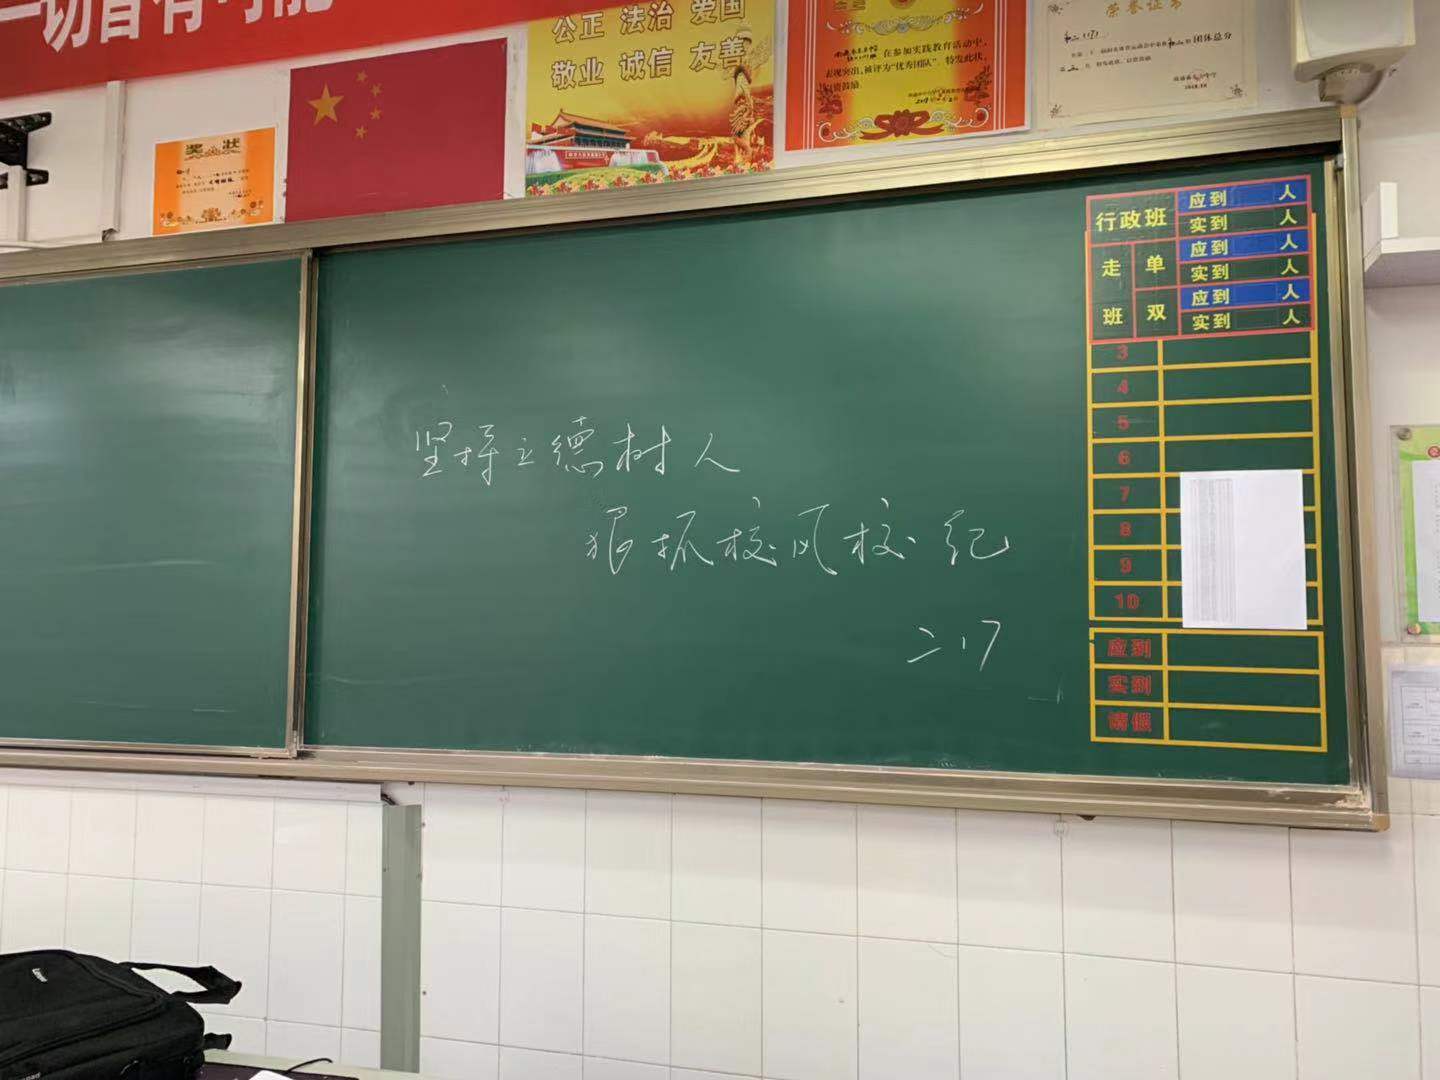 一切皆有可能
公正 法治 爱国
敬业 诚信 友善
奖状
在参加实践教育活动中,
表现突出,被评为“优秀团队”。特发此状,
以资鼓励。
荣誉证书
团体总分
坚持立德树人
狠抓校风校纪
二.17
行政班 应到 人
实到 人
走班 单 应到 人
实到 人
双 应到 人
实到 人
3
4
5
6
7
8
9
10
应到
实到
请假